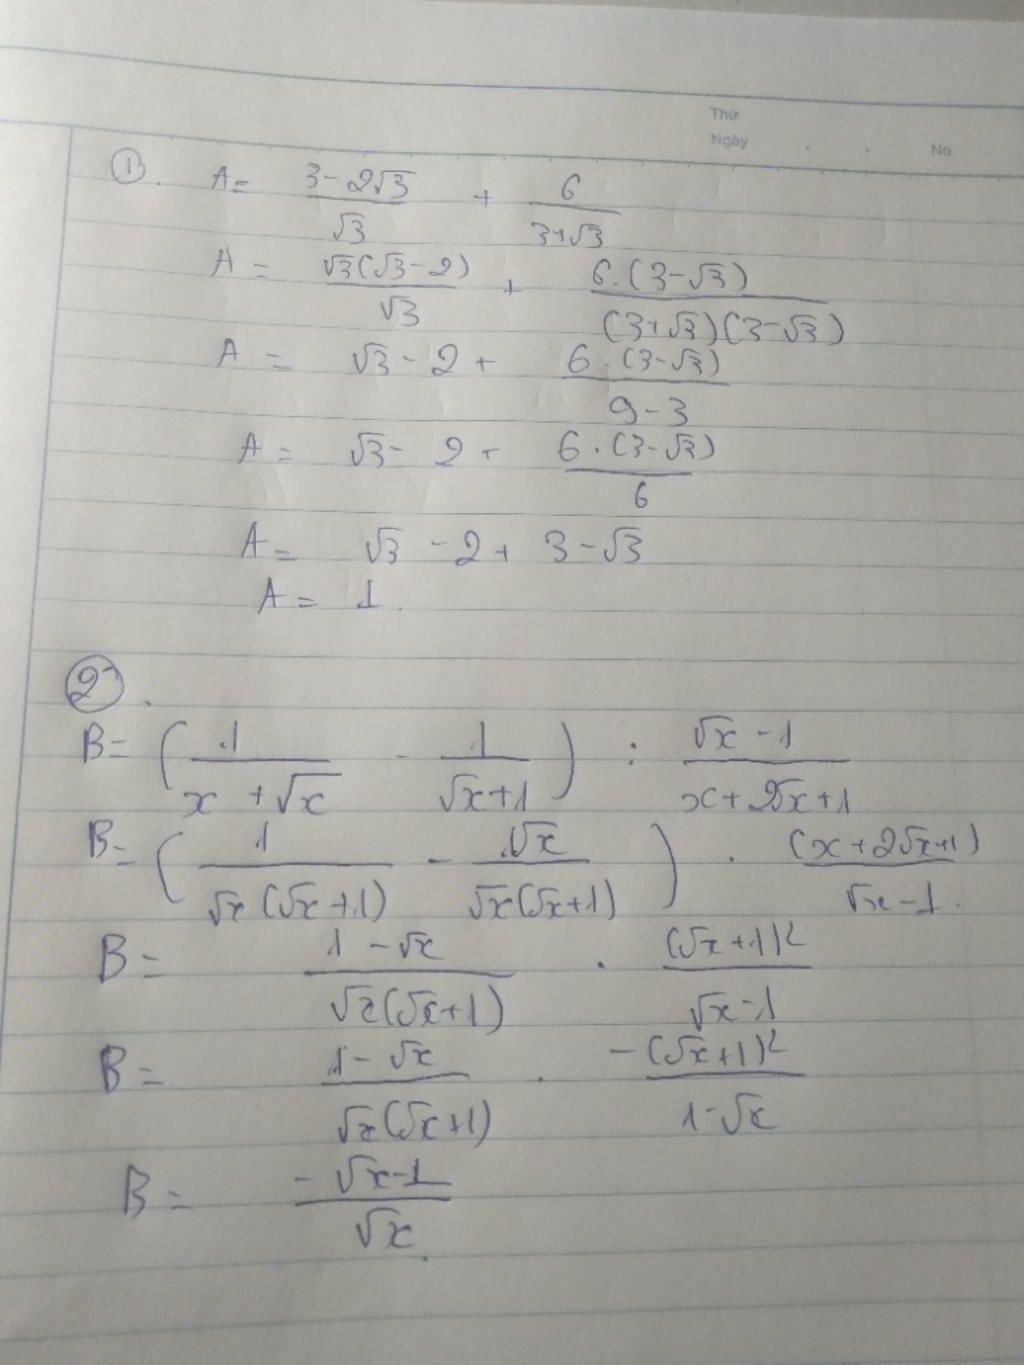 Thứ
Ngày
No.
①. A = (3 - 2√3)/√3 + 6/(3+√3)
A = √3(√3-2)/√3 + 6.(3-√3)/((3+√3)(3-√3))
A = √3 - 2 + 6.(3-√3)/(9-3)
A = √3 - 2 + 6.(3-√3)/6
A = √3 - 2 + 3 - √3
A = 1.
②.
B = (1/(x+√x) - 1/(√x+1)) : (√x-1)/(x+2√x+1)
B = (1/(√x(√x+1)) - √x/(√x(√x+1))) . (x+2√x+1)/(√x-1).
B = (1-√x)/(√x(√x+1)) . (√x+1)²/(√x-1)
B = (1-√x)/(√x(√x+1)) . -(√x+1)²/(1-√x)
B = (-√x-1)/√x.